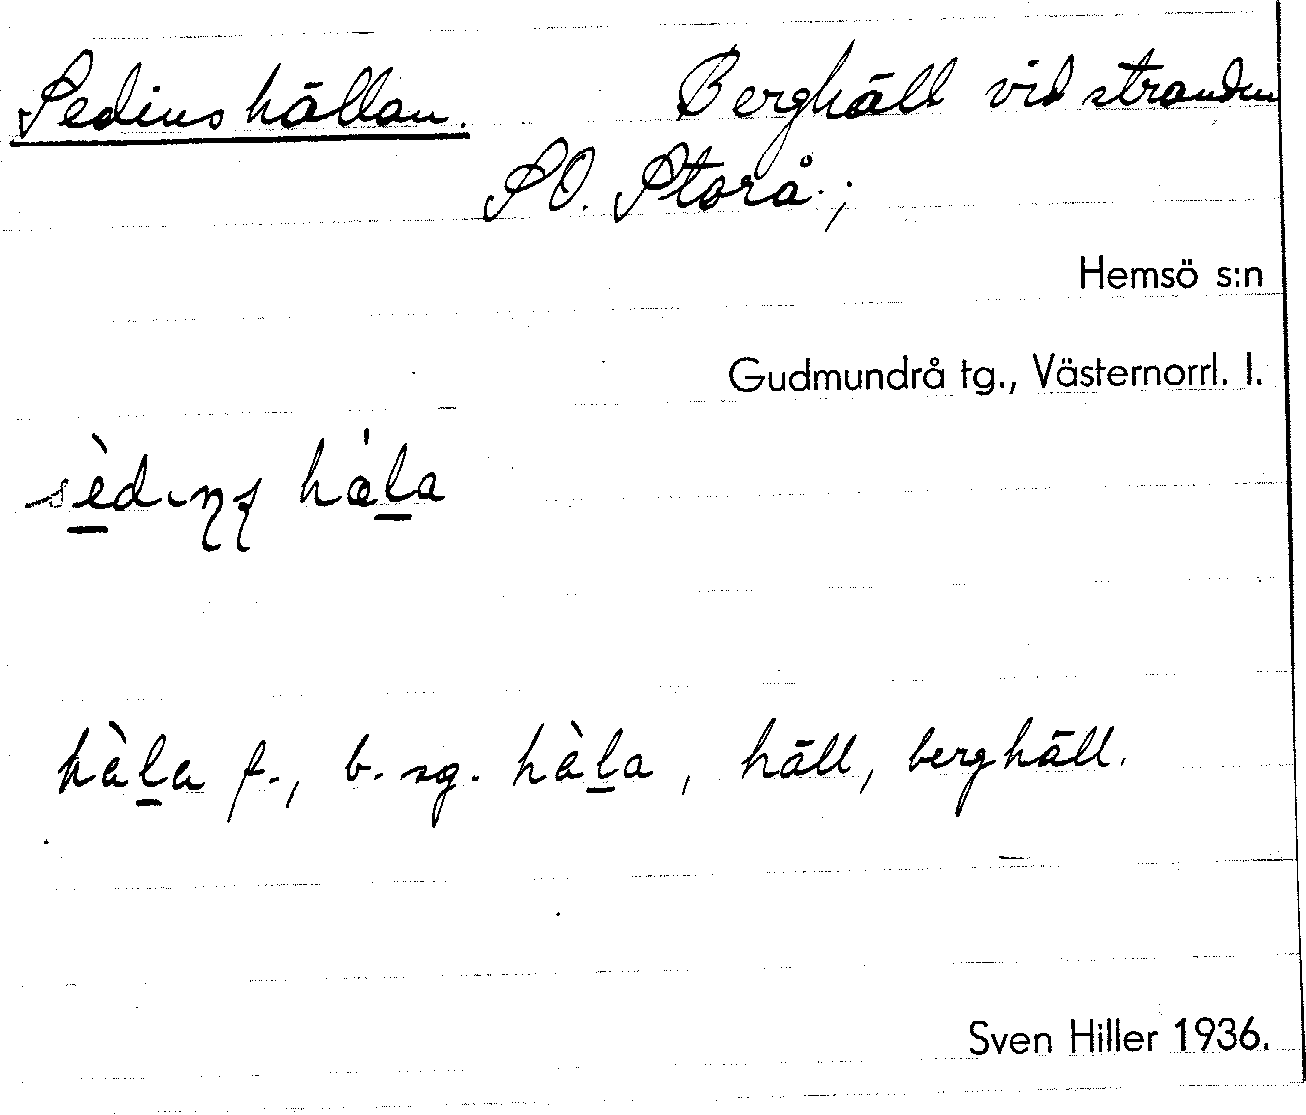 Sedinshällan. Berghäll vid stranden
SO. Storå.;
Hemsö s:n
Gudmundrå tg., Västernorrl. l.
hàl̲a f., b. sg. hàl̲a, häll, berghäll.
Sven Hiller 1936.